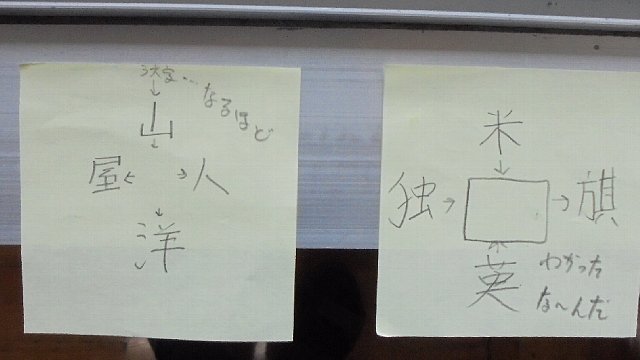 なるほど
山
屋 人
洋
米
独 旗
英
わかった
な〜んだ